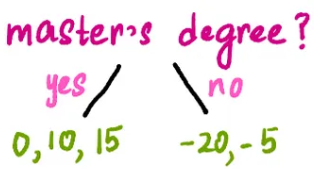 master's degree?
yes no
0, 10, 15 -20, -5